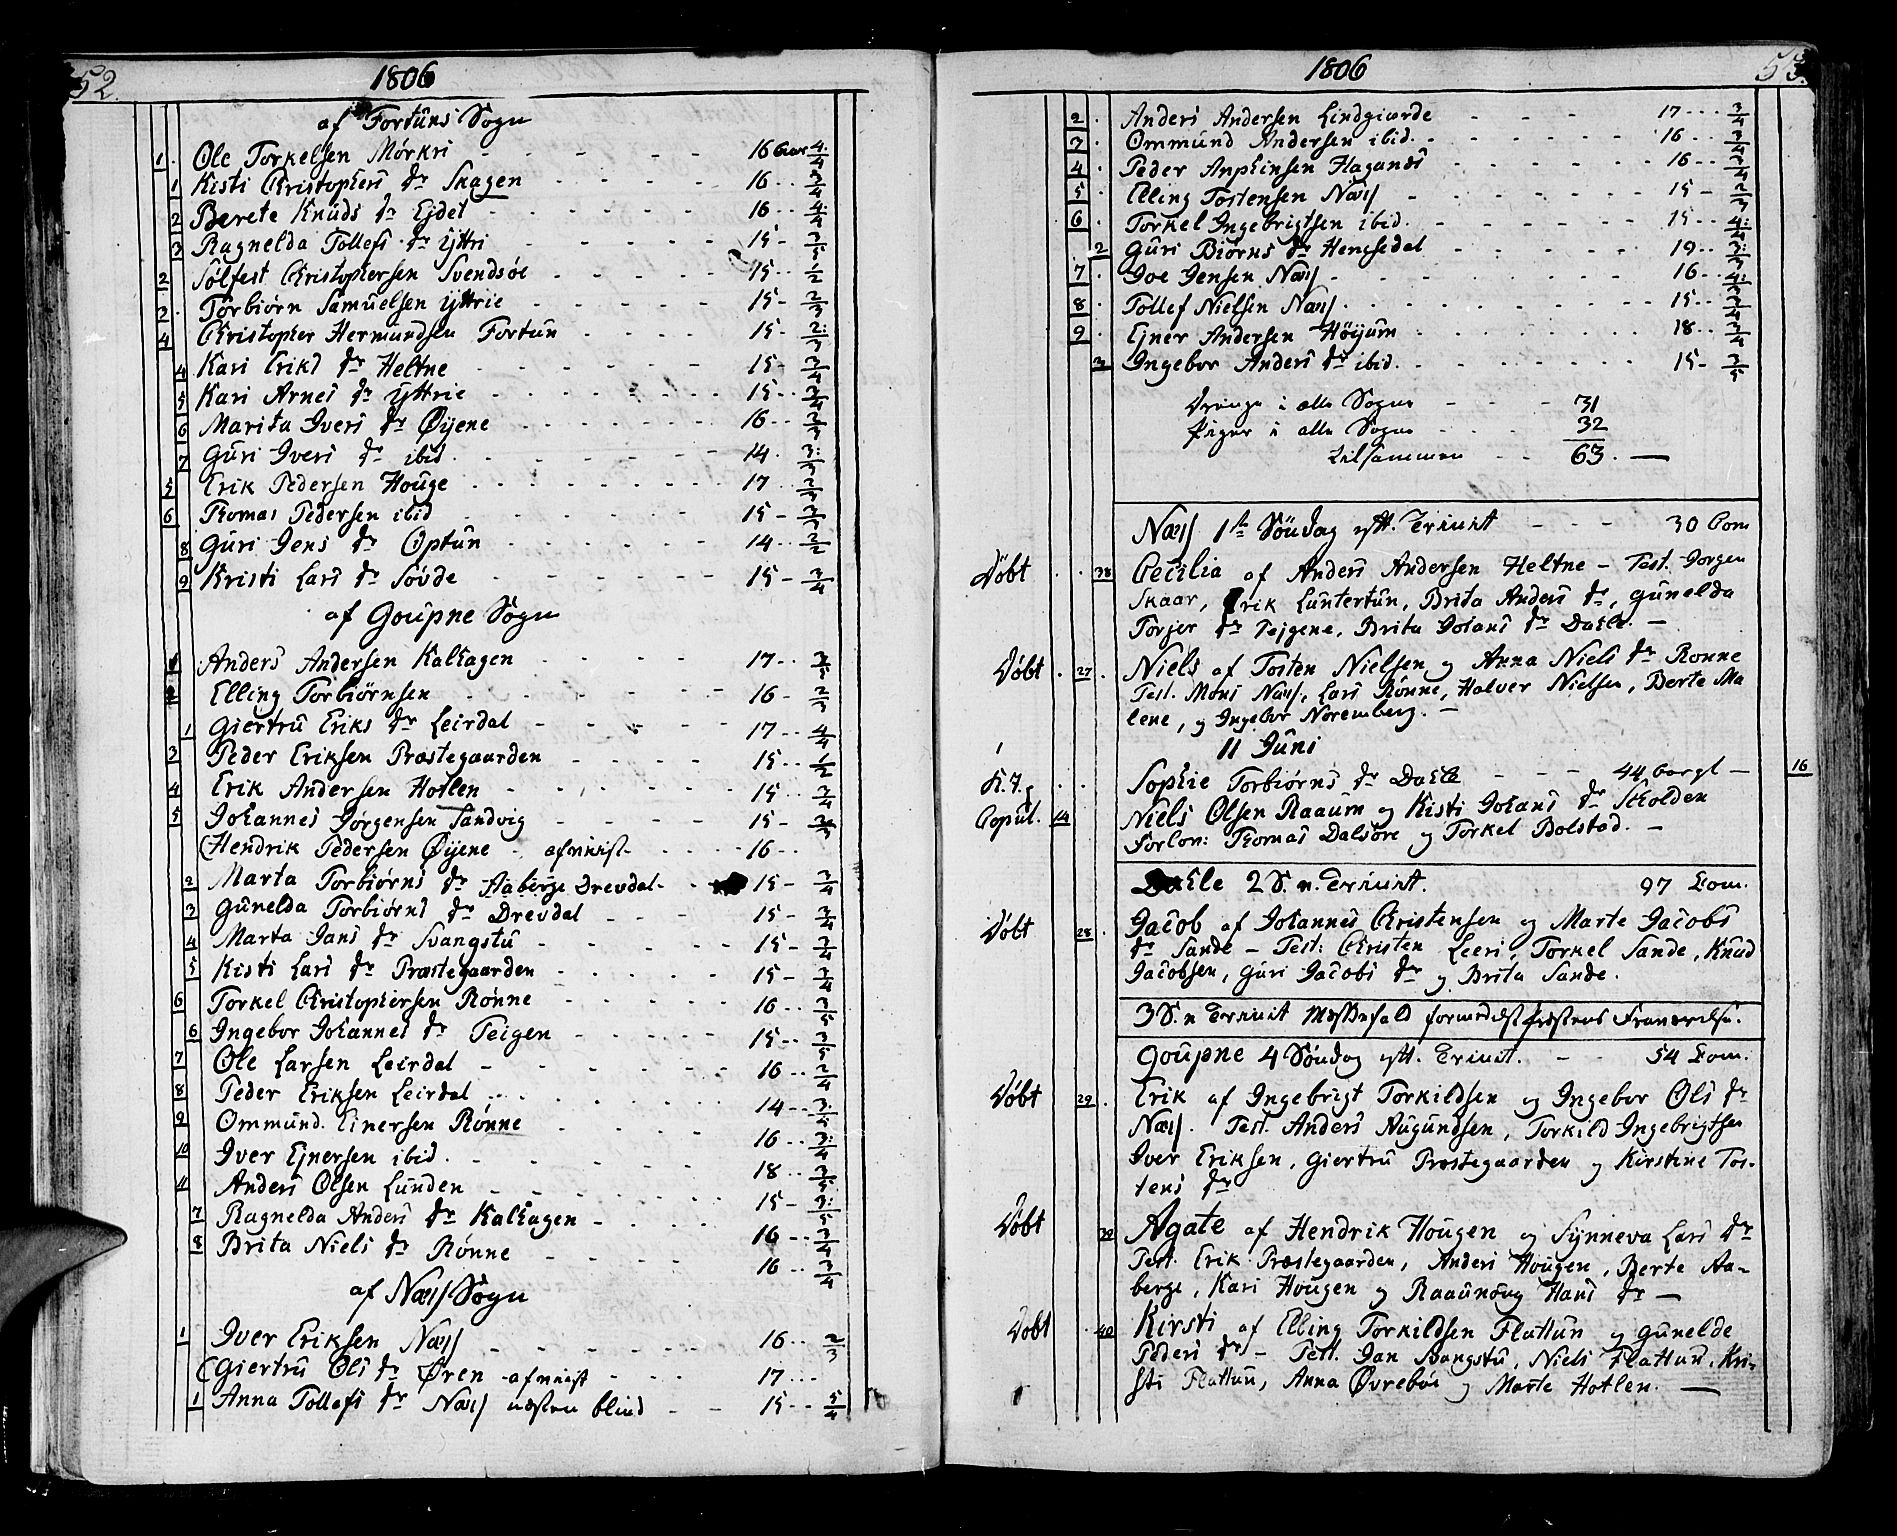 52.
1806
af Fortuns Sogn
1. Ole Torkelsen Mørkri - - - 16 Aar 4/4
1 Kisti Christophers dr Skagen - - - 16 -
2 Berete Knuds dr Ejdet - - - 16 - 4/4
3 Ragnelda Tollefs dr Yttri - - - 15 -
2 Sølfest Christophersen Svendsøe - - - 15 - 1/2
2. Torbiørn Samuelsen Yttrie - - - 15 - 2/3
4 Christopher Hermundsen Fortun - - - 15 -
4 Kari Eriks dr Heltne - - - 15 - 3/4
5 Kari Arnes dr Yttrie - - - 15 -
6 Marita Ivers dr Øyene - - - 16 -
7 Guri Ivers dr ibid - - - 14 -
5 Erik Pedersen Houge - - - 17
6 Thomas Pedersen ibid - - - 15 -
8 Guri Jens dr Optun - - - 14 - 2/2
9 Kristi Lars dr Søvde - - - 15 - 3/4
af Goupne Sogn
1 Anders Andersen Kalhagen - - - 17 -
2 Elling Torbiørnsen - - - 16 - 2/3
1 Giertru Eriks dr Leirdal - - - 17 - 4/4
3 Peder Eriksen Præstegaarden - - - 15 - 1/2
4 Erik Andersen Hotlen - - - 15 - 3/4
5 Johannes Jørgensen Sandvig - - - 15 -
(Hendrik Pedersen Øyene - afviist - - - 16 -
2 Marta Torbiørns dr Aaberge Drevdal - - 15 - 3/4
3 Gunelda Torbiørns dr Drevdal - - - 15 - 3/4
4 Marta Jans dr Svangstu - - - 15 - 3/4
5 Kisti Lars dr Præstegaarden - - - 15 - 3/4
6 Torkel Christophersen Rønne - - - 16 - 3/5
6 Ingebor Johannes dr Teigen - - - 15 - 3/5
7 Ole Larsen Leirdal - - - 16 - 2/4
8 Peder Eriksen Leirdal - - - 14 - 3/4
9 Ommund Einersen Rønne - - - 16 - 3/4
10 Iver Ejnersen ibid. - - - 18 - 3/5
11 Anders Olsen Lunden - - - 15 - 3/5
7 Ragnelda Anders dr Kalhagen - - - 16 -
8 Brita Niels dr Rønne - - - 16 - 3/4
af Næss Sogn
1 Iver Eriksen Næss - - - 16 - 2/3
(Giertru Ols dr Øren - afviist - - - 17 -
1 Anna Tollefs dr Næss næsten blind - - 15 - 5/4
53.
1806
2. Anders Andersen Lindgiærde - - - 17 - 3/4
3. Ommund Andersen ibid. - - - 16 -
4. Peder Anphinsen Hagands - - - 16 -
5. Elling Tostensen Næss - - - 15 -
6. Torkel Ingebrigtsen ibid. - - - 15 -
2 Guri Biørns dr Hemsedal - - - 19 -
7. Joe Jensen Næss - - - 16 -
8. Tollef Nielsen Næss - - - 15 -
9. Ejner Andersen Høijum - - - 18 -
3 Ingebor Anders dr ibid. - - - 15 - 3/5
Drenge i alle Sogne - - - 31
Piger i alle Sogne - - - 32
Tilsammen - - 63. —
Næss 1te Søndag eftt. Trinit - - - 30 Com
Døbt . . 38 Cecilia af Anders Andersen Heltne - Test. Jorgen
Skaar, Erik Luntertun, Brita Anders dr, Gunelda
Torjer dr Tejgene, Brita Johans dr Dahle. —
Døbt . 27. Niels af Tosten Nielsen og Anna Niels dr Ronne
Test. Mons Næss, Lars Rønne, Halver Nielsen, Berte Ma
lene, og Ingebor Noremberg. —
11 Juni
K.I. . . Sophie Torbiørns dr Dahle - - - 44 16
Copul. 14 Niels Olsen Raaum og Kisti Johans dr Skolden
Forlov: Thomas Dalsøre og Torkel Bolstad. —
Dahle 2 S. n. Trinit. 97 Com.
Døbt 28. Jacob af Johannes Christensen og Marte Jacobs
dr Sande - Test: Christen Leeri, Torkel Sande, Knud
Jacobsen, Guri Jacobs dr og Brita Sande.
3 S. n Trinit Messefald formedelst Præstens Fraværelse.
Goupne 4 Søndag eftt. Trinit. - - 54 Com.
Døbt 29. Erik af Ingebrigt Torkildsen og Ingebor Ols dr
Næss. Test. Anders Augundsen, Torkild Ingebrigtsen
Iver Eriksen, Giertru Præstegaarden og Kirstine Tos-
tens dr
Døbt 39 Agate af Hendrik Hougen og Synneva Lars dr
Test. Erik Præstegaarden, Anders Hougen, Berte Aa-
berge, Kari Hougen og Raaunoug Hans dr —
Døbt . 40 Kirsti af Elling Torkildsen Flattun og Gunelde
Peders dr - Test. Jan Svangstu, Niels Flattun, Kri-
sti Flattun, Anna Øvrebøe og Marte Hotlen. —